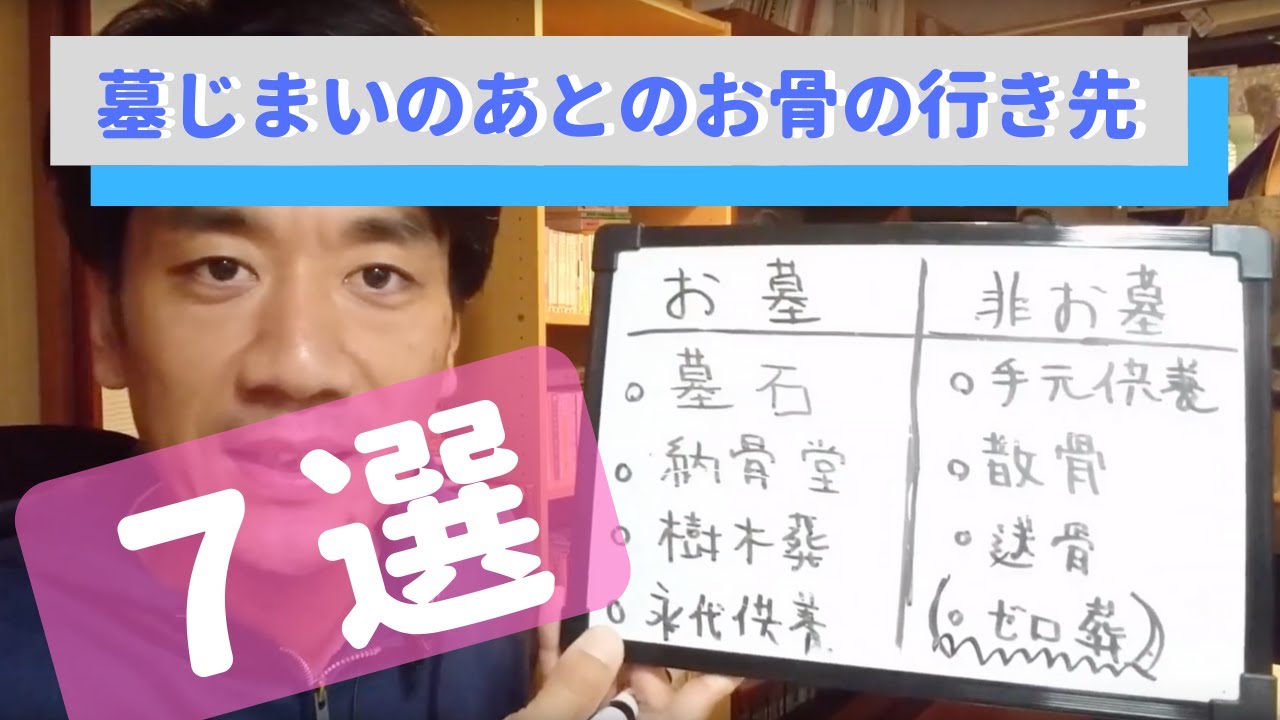 墓じまいのあとのお骨の行き先
7選
お墓
墓石
納骨堂
樹木葬
永代供養
非お墓
手元供養
散骨
送骨
(ゼロ葬)